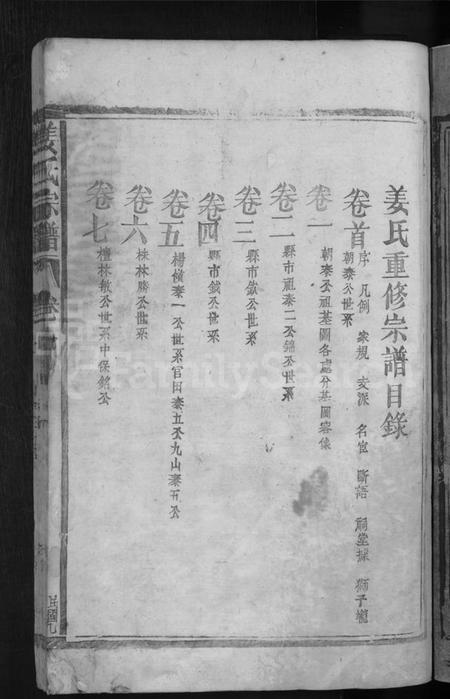 姜氏重修宗譜目錄
卷首 序 凡例 家規 支派 名宦 斷語 祠堂據 獅子壠
朝泰公世系
卷一 朝泰公祖基圖各處分基圖容像
卷二 縣市祖泰二公錦公世系
卷三 縣市欽公世系
卷四 縣市鎮公世系
卷五 楊橫泰一公世系官田泰五公九山泰五公
卷六 株林勝公世系
卷七 檀林敏公世系中保銘公
姜氏宗譜
卷
FamilySearch